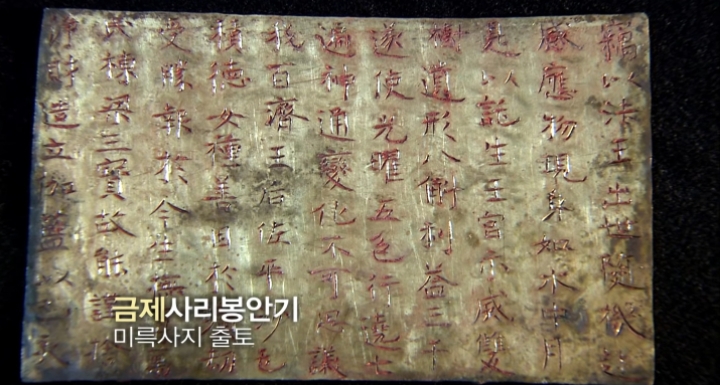 竊以法王出世隨機赴
感應物現身如水中月
是以託生王宮示滅雙
樹遺形八斛利益三千
遂使光曜五色行遶七
遍神通變化不可思議
我百濟王后佐平乇
積德女種善因於
受勝報於今生
民棟梁三寶故能謹
淨財造立伽藍以亥
금제사리봉안기
미륵사지 출토